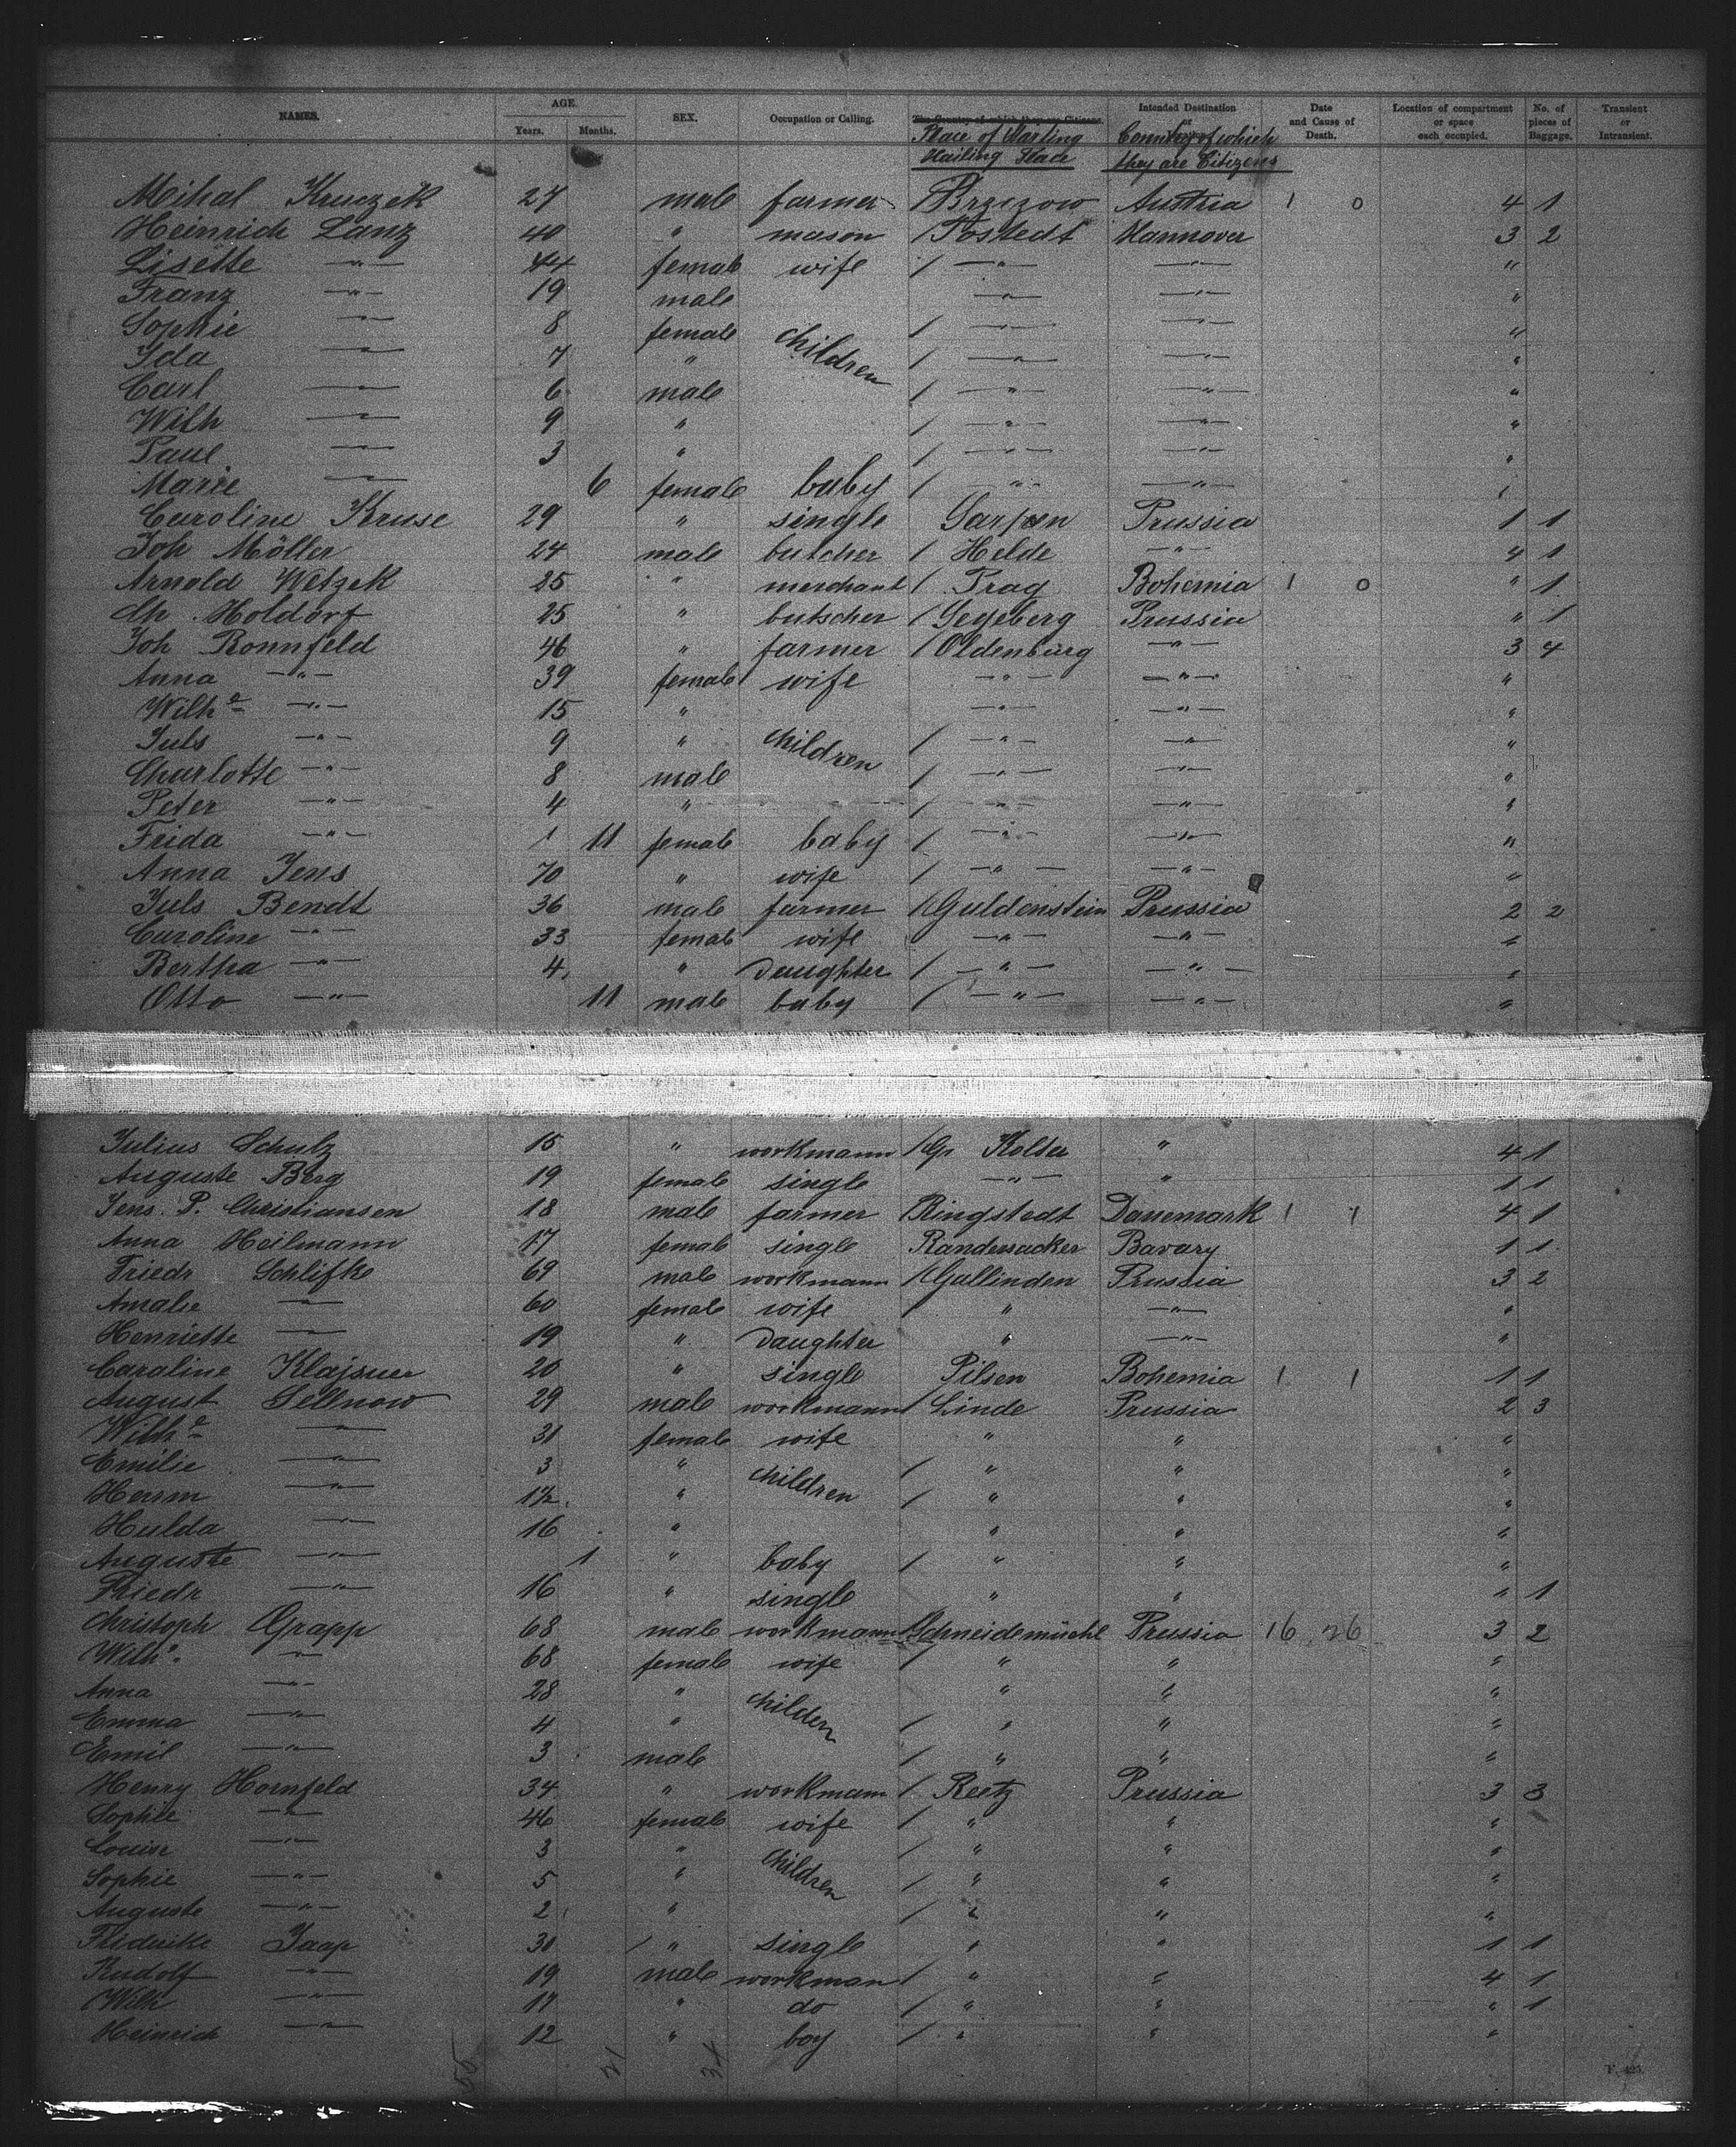 NAMES. AGE. Years. Months. SEX. Occupation or Calling. The Country of which they are Citizens. Intended Destination or Date and Cause of Death. Location of compartment or space each occupied. No. of pieces of Baggage. Transient or Intransient.
Place of Country of which
Hailing Place they are Citizens
Mihal Kruczek 27 male farmer Brzezow Austria 1 0 4 1
Heinrich Lanz 40 " mason / Tostedt Hannover 3 2
Lisette —"— 44 female wife / —"— —"— "
Franz —"— 19 male —"— —"— "
Sophie —"— 8 female children / —"— —"— "
Ida —"— 7 " / —"— —"— "
Carl —"— 6 male / —"— —"— "
Wilh —"— 9 " / —"— —"— "
Paul —"— 3 " / —"— —"— "
Marie —"— 6 female baby / —"— —"— "
Caroline Kruse 29 " single Sarpen Prussia 1 1
Joh Möller 24 male butcher / Helde —"— 4 1
Arnold Wetzek 25 " merchant / Prag Bohemia 1 0 " 1
Ch. Holdorf 25 " butscher / Segeberg Prussia " 1
Joh Ronnfeld 46 " farmer / Oldenburg —"— 3 4
Anna —"— 39 female wife —"— —"— "
Wilhe —"— 15 " —"— —"— "
Juls —"— 9 " children / —"— —"— "
Charlotte —"— 8 male / —"— —"— "
Peter —"— 4 " / —"— —"— "
Frida —"— 1 11 female baby / —"— —"— "
Anna Jens 70 " wife / —"— —"— "
Juls Bendt 36 male farmer / Guldenstein Prussia 2 2
Caroline —"— 33 female wife —"— —"— "
Bertha —"— 4 " daughter / —"— —"— "
Otto —"— 11 male baby / —"— —"— "
Julius Schulz 15 " workmann / Gr Kolsee " 4 1
Auguste Berg 19 female single —"— " 1 1
Jens. P. Christiansen 18 male farmer Ringstedt Danemark 1 1 4 1
Anna Heilmann 17 female single Randersacker Bavary 1 1
Friedr Schlifke 69 male workmann / Gullinden Prussia 3 2
Amalie —"— 60 female wife / " —"— "
Henriette —"— 19 " daughter " —"— "
Caroline Klajsner 20 " single Pilsen Bohemia 1 1 1 1
August Sellnow 29 male workmann / Linde Prussia 2 3
Wilhe —"— 31 female wife " " "
Emilie —"— 3 " children / " " "
Herrm —"— 1½ " / " " "
Hulda —"— 16 " " " "
Auguste —"— 1 " baby / " " "
Friedr —"— 16 " single " " " 1
Christoph Grapp 68 male workmann Schneidemüehl Prussia 16 26 3 2
Wilhe —"— 68 female wife / " " "
Anna —"— 28 " childen " " "
Emma —"— 4 " / " " "
Emil —"— 3 male / " " "
Henry Hornfeld 34 " workmann / Reetz Prussia 3 3
Sophie —"— 46 female wife / " " "
Louise —"— 3 " children / " " "
Sophie —"— 5 " / " " "
Auguste —"— 2 " / " " "
Friderike Jaap 30 / " single " " 1 1
Rudolf —"— 19 male workman / " " 4 1
Wilh —"— 17 " do / " " " 1
Heinrich —"— 12 " boy / " " "
55 21 34